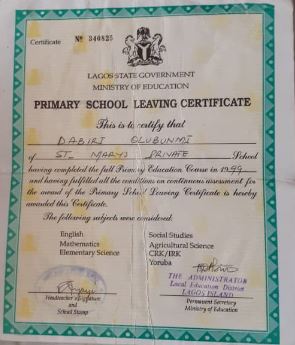 Certificate Nº 340825
LAGOS STATE GOVERNMENT
MINISTRY OF EDUCATION
PRIMARY SCHOOL LEAVING CERTIFICATE
This is to certify that
DABIRI OLUBUNMI
of ST. MARYS PRIVATE School
having completed the full Primary Education Course in 1999
and having fulfilled all the conditions on continuous assessment for
the award of the Primary School Leaving Certificate is hereby
awarded this Certificate.
The following subjects were considered:
English
Mathematics
Elementary Science
Social Studies
Agricultural Science
CRK/IRK
Yoruba
Headteacher's Signature
and School Stamp
THE ADMINISTRATOR
Local Education District
LAGOS ISLAND
Permanent Secretary
Ministry of Education